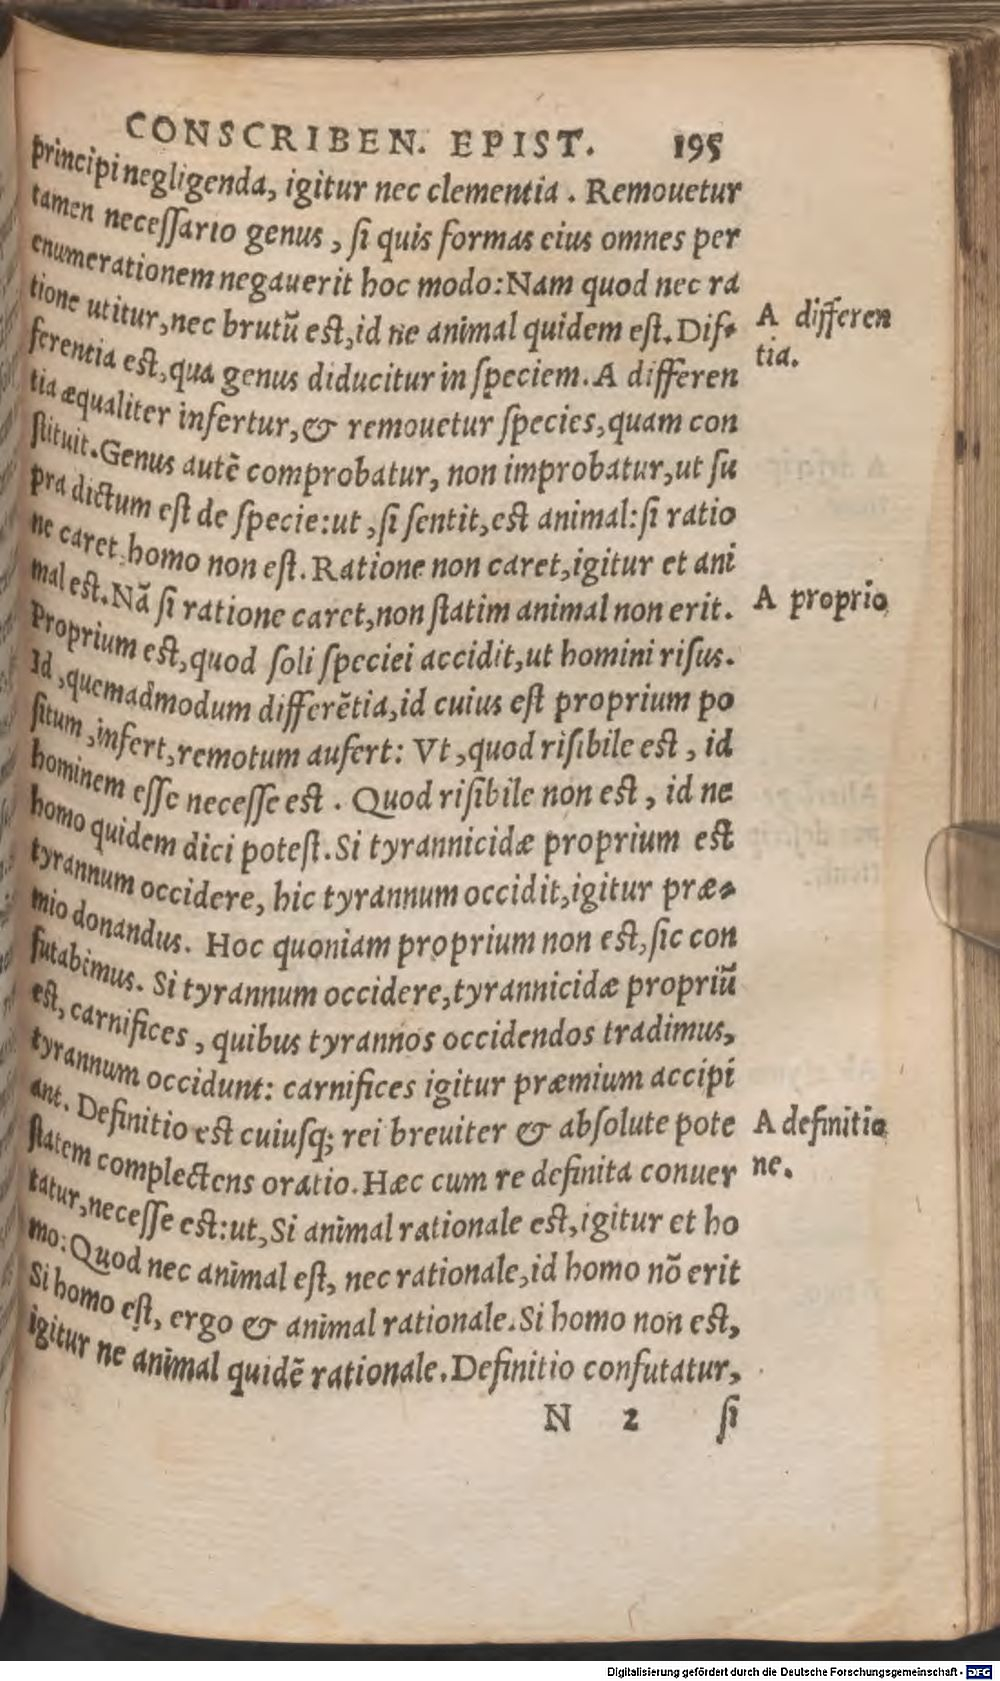 CONSCRIBEN. EPIST. 195
principi negligenda, igitur nec clementia. Remouetur
tamen neceſſario genus, ſi quis formas eius omnes per
enumerationem negauerit hoc modo: Nam quod nec ra
tione utitur, nec brutū eſt, id ne animal quidem eſt. Dif-
ferentia eſt, qua genus diducitur in ſpeciem. A differen
tia æqualiter infertur, & remouetur ſpecies, quam con
ſtituit. Genus autē comprobatur, non improbatur, ut ſu
pra dictum eſt de ſpecie: ut, ſi ſentit, eſt animal: ſi ratio
ne caret, homo non eſt. Ratione non caret, igitur et ani
mal eſt. Nā ſi ratione caret, non ſtatim animal non erit.
Proprium eſt, quod ſoli ſpeciei accidit, ut homini riſus.
Id, quemadmodum differētia, id cuius eſt proprium po
ſitum, infert, remotum aufert: Vt, quod riſibile eſt, id
hominem eſſe neceſſe eſt. Quod riſibile non eſt, id ne
homo quidem dici poteſt. Si tyrannicidæ proprium eſt
tyrannum occidere, hic tyrannum occidit, igitur præ-
mio donandus. Hoc quoniam proprium non eſt, ſic con
futabimus. Si tyrannum occidere, tyrannicidæ propriū
eſt, carnifices, quibus tyrannos occidendos tradimus,
tyrannum occidunt: carnifices igitur præmium accipi
ant. Definitio eſt cuiuſq; rei breuiter & abſolute pote
ſtatem complectens oratio. Hæc cum re definita conuer
tatur, neceſſe eſt: ut, Si animal rationale eſt, igitur et ho
mo: Quod nec animal eſt, nec rationale, id homo nō erit
Si homo eſt, ergo & animal rationale. Si homo non eſt,
igitur ne animal quidē rationale. Definitio confutatur,
N 2 ſi
A differen
tia.
A proprio
A definitio
ne.
Digitalisierung gefördert durch die Deutsche Forschungsgemeinschaft - DFG